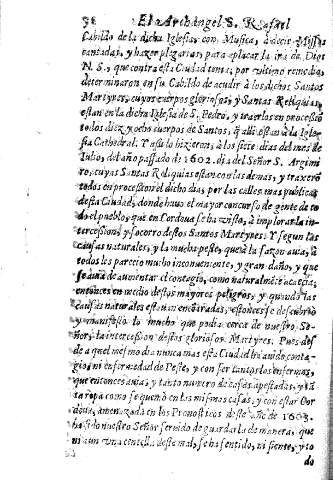 58 El Archangel S. Rafael
Cabildo de la dicha Iglesia, con Musica, à dezir Missas
cantadas, y hazer plegarias, para aplacar la ira de Dios
N. S., que contra esta Ciudad tenia; por vltimo remedio,
determinaron en su Cabildo de acudir à los dichos Santos
Martyres, cuyos cuerpos gloriosos, y Santas Reliquias,
estan en la dicha Iglesia de S. Pedro, y traerlos en processiõ
todos diez y ocho cuerpos de Santos, q̃ alli estan à la Igle
sia Cathedral. Y assi lo hizieron, à los siete dias del mes de
Iulio, del año passado de 1602. dia del Señor S. Argimi
ro, cuyas Santas Reliquias estan con las demas, y traxerõ
todos en processiõn el dicho dia, por las calles mas publicas
desta Ciudad, donde huvo el mayor concurso de gente de to
do el pueblo, que en Cordova se ha visto, à implorar la in-
tercession, y socorro destos Santos Martyres. Y segun las
causas naturales, y la mucha peste, que à la sazon avia, à
todos les parecio mucho inconveniente, y gran daño, y que
se avia de aumentar el contagio, como naturalmẽte acaecia,
entonces en medio destos mayores peligros, y quando las
causas naturales estavan encõtradas, estonces se descubriò
y manifestò lo mucho que podia cerca de nuestro Se-
ñor, la intercession destos gloriosos Martyres. Pues des-
de aquel mesmo dia nunca mas esta Ciudad ha avido conta
gio, ni enfermedad de Peste, y con ser tantos los enfermos,
que entonces avia, y tanto numero de casas apestadas, y tã
ta ropa como se quemò en las mismas casas, y con estar Cor
dova, amenazada en los Pronosticos deste año de 1603.
ha sido nuestro Señor servido de guardarla de manera, que
ni aun vna centella deste mal, se ha sentido, ni siente, y to
do